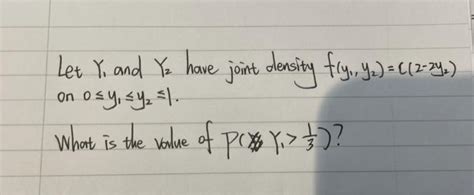 Let Y₁ and Y₂ have joint density f(y₁, y₂) = C(2-2y₂)
on 0 ≤ y₁ ≤ y₂ ≤ 1.
What is the value of P( Y₁ > 1/3 )?